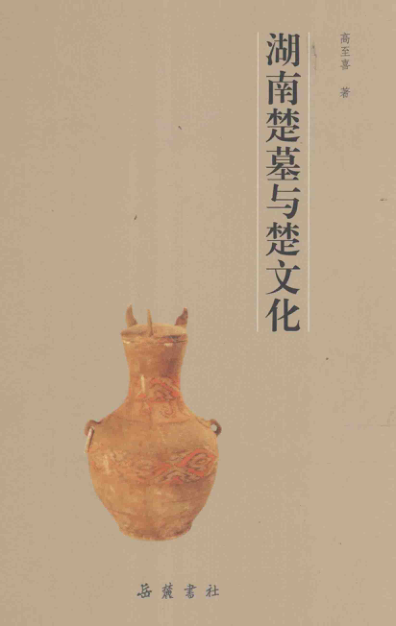 高至喜 著
湖南楚墓与楚文化
岳麓书社